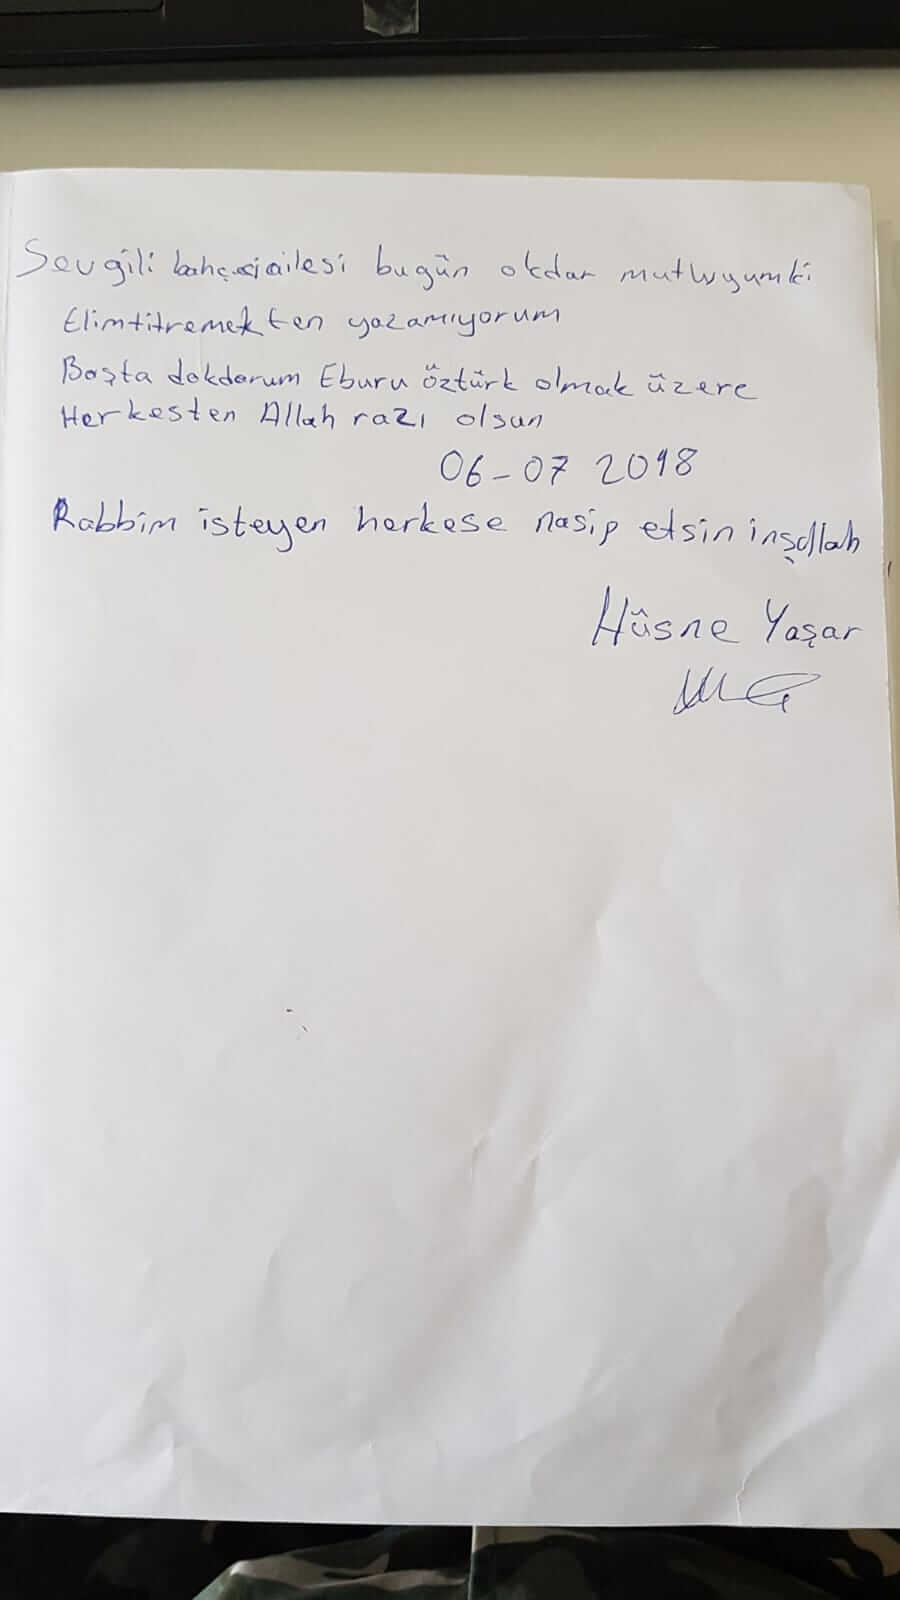 Sevgili bahçeci ailesi bugün okdar mutluyumki
Elimtitremekten yazamıyorum
Başta dokdorum Eburu öztürk olmak üzere
Herkesten Allah razı olsun
06-07 2018
Rabbim isteyen herkese nasip etsin inşallah
Hüsne Yaşar